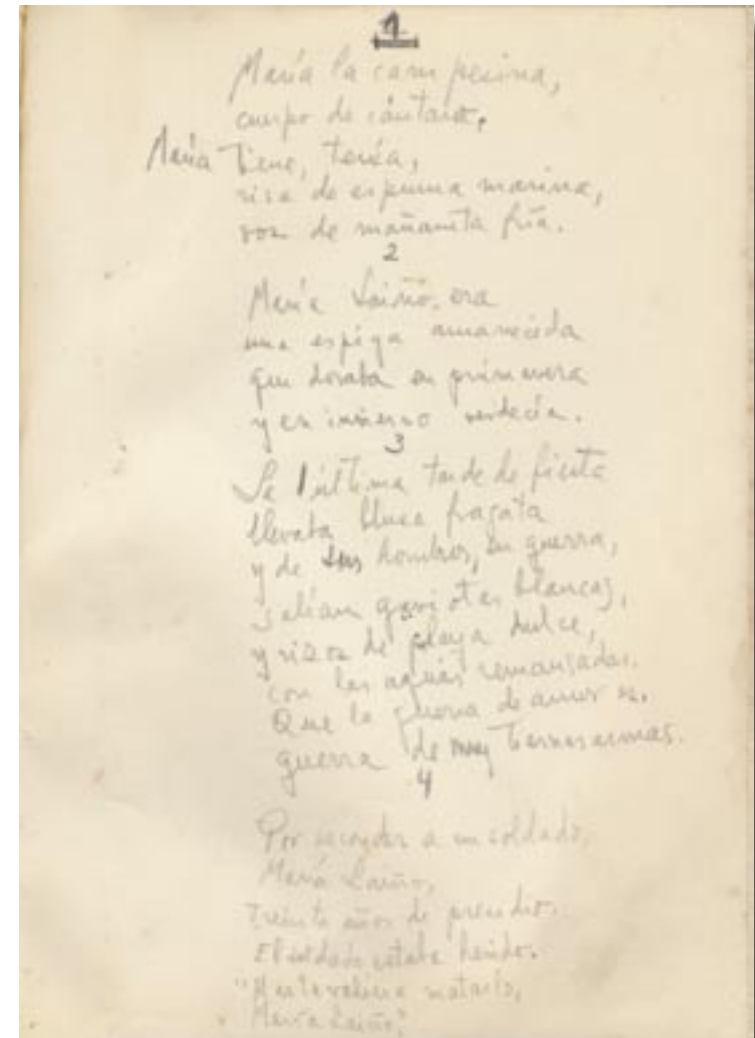 1
María la campesina,
cuerpo de cántaro.
María Tiene, tenía,
risa de espuma marina,
voz de mañanita fría.
2
María Laiño, era
una espiga amanecida
que doraba en primavera
y en invierno verdecía.
3
La última tarde de fiesta
llevaba blusa fragata
y de sus hombros, en guerra,
salían gaviotas blancas,
y rizos de playa dulce,
con las aguas remansadas.
Que la guerra de amor es,
guerra de muy tiernas armas.
4
Por esconder a un soldado,
María Laiño,
treinta años de presidio.
El soldado estaba herido.
"Más te valiera matarlo,
María Laiño."